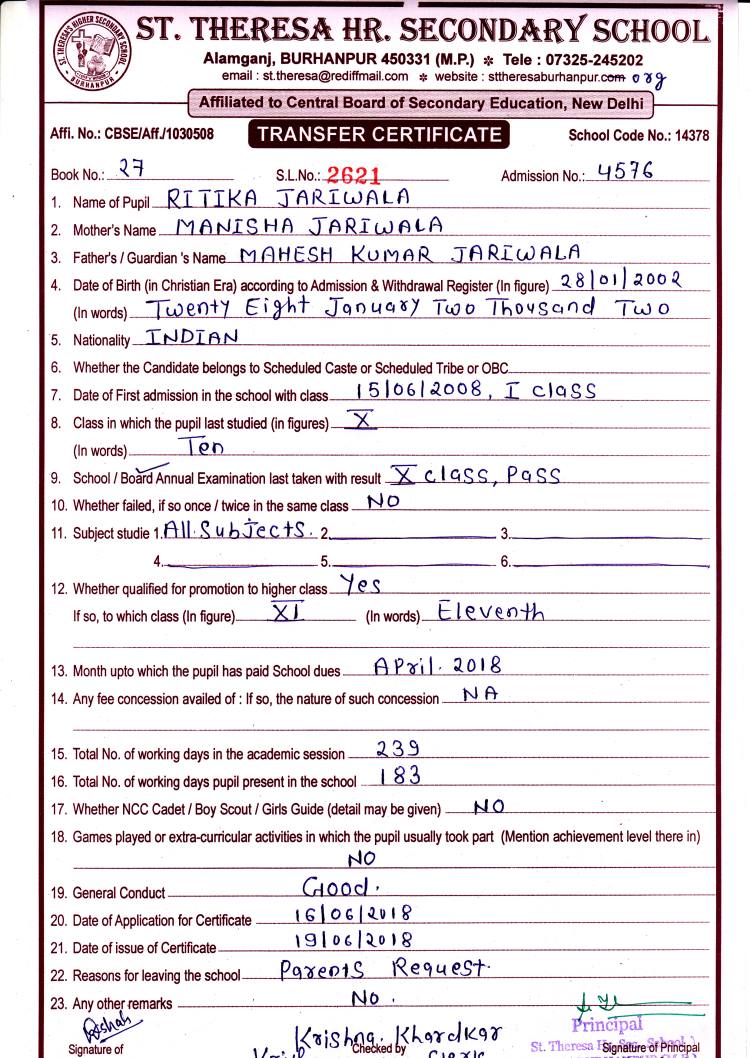 ST. THERESA'S HIGHER SECONDARY SCHOOL
BURHANPUR
ST. THERESA HR. SECONDARY SCHOOL
Alamganj, BURHANPUR 450331 (M.P.) * Tele : 07325-245202
email : st.theresa@rediffmail.com * website : sttheresaburhanpur.com org
Affiliated to Central Board of Secondary Education, New Delhi
Affi. No.: CBSE/Aff./1030508 TRANSFER CERTIFICATE School Code No.: 14378
Book No.: 27 S.L.No.: 2621 Admission No.: 4576
1. Name of Pupil RITIKA JARIWALA
2. Mother's Name MANISHA JARIWALA
3. Father's / Guardian 's Name MAHESH KUMAR JARIWALA
4. Date of Birth (in Christian Era) according to Admission & Withdrawal Register (In figure) 28/01/2002
(In words) Twenty Eight January Two Thousand Two
5. Nationality INDIAN
6. Whether the Candidate belongs to Scheduled Caste or Scheduled Tribe or OBC
7. Date of First admission in the school with class 15/06/2008, I class
8. Class in which the pupil last studied (in figures) X
(In words) Ten
9. School / Board Annual Examination last taken with result X class, Pass
10. Whether failed, if so once / twice in the same class NO
11. Subject studie 1. All Subjects. 2. 3.
4. 5. 6.
12. Whether qualified for promotion to higher class Yes
If so, to which class (In figure) XI (In words) Eleventh
13. Month upto which the pupil has paid School dues April. 2018
14. Any fee concession availed of : If so, the nature of such concession NA
15. Total No. of working days in the academic session 239
16. Total No. of working days pupil present in the school 183
17. Whether NCC Cadet / Boy Scout / Girls Guide (detail may be given) NO
18. Games played or extra-curricular activities in which the pupil usually took part (Mention achievement level there in)
NO
19. General Conduct Good.
20. Date of Application for Certificate 16/06/2018
21. Date of issue of Certificate 19/06/2018
22. Reasons for leaving the school Parents Request.
23. Any other remarks No.
Krishna Khardkar Principal
Signature of Checked by Clerk St. Theresa Signature of Principal